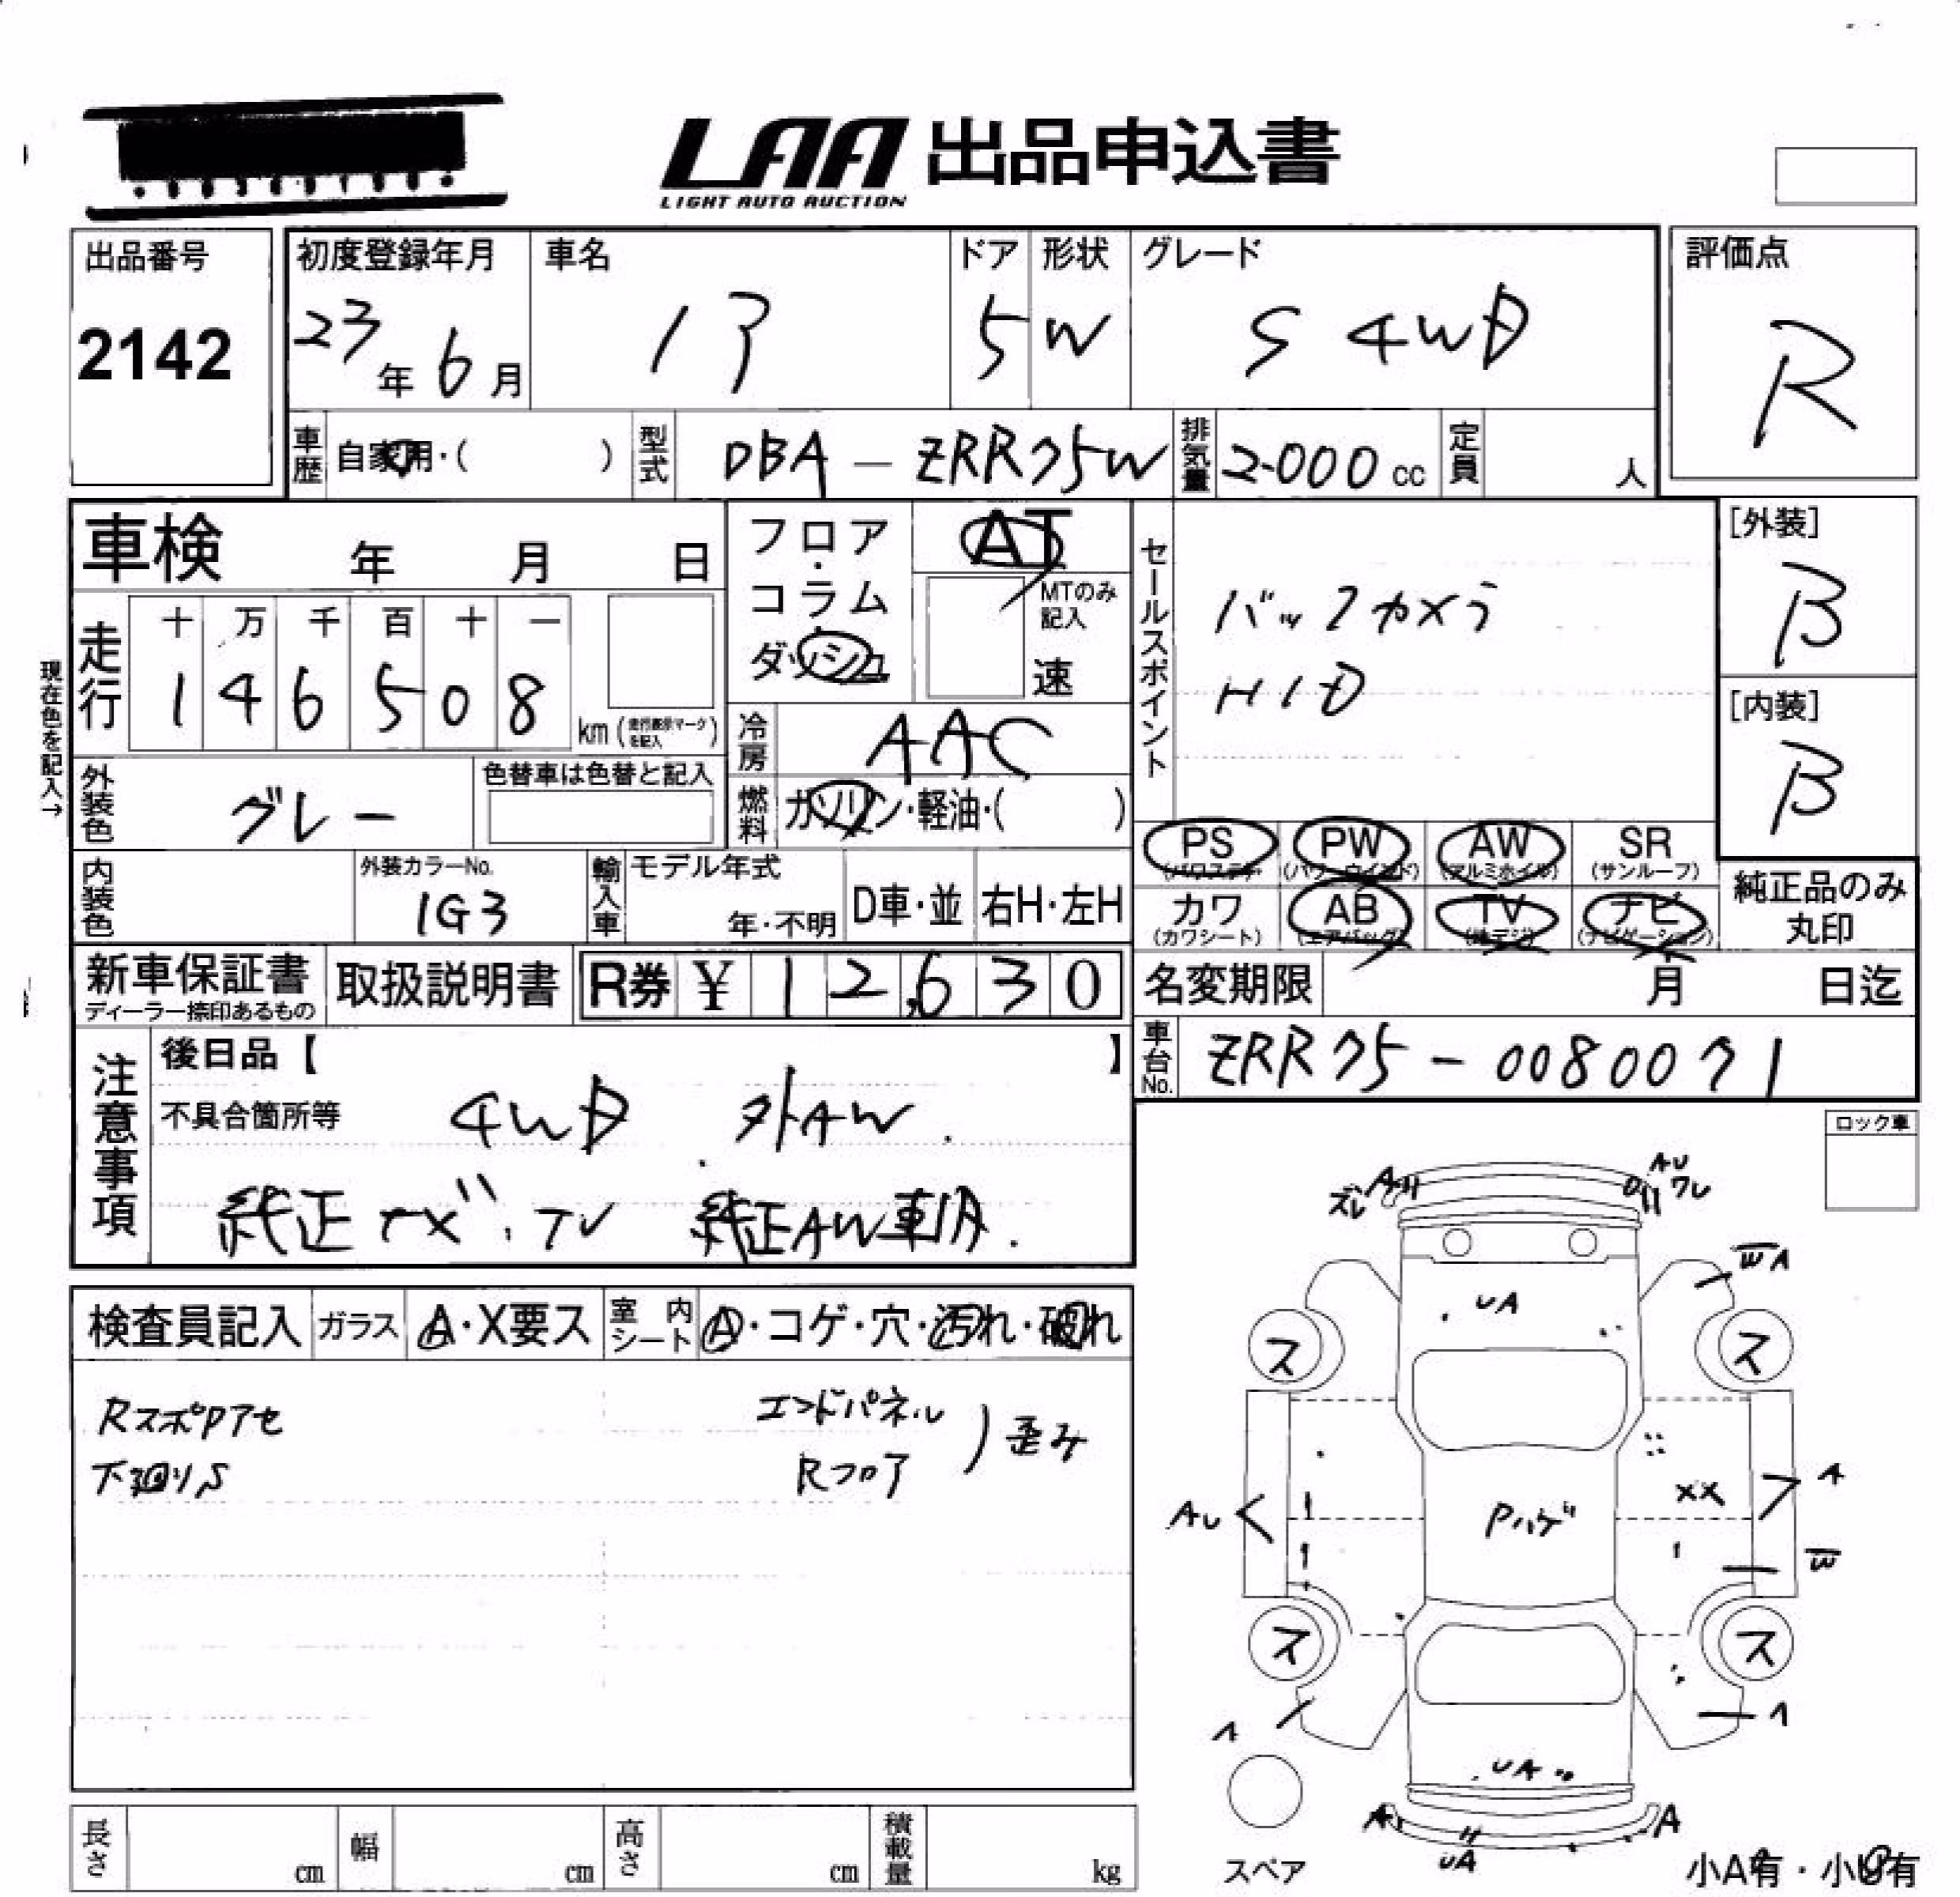 LAA 出品申込書
LIGHT AUTO AUCTION
出品番号
2142
初度登録年月
23年 6月
車名
ドア
5
形状
W
グレード
S 4WD
評価点
R
車歴 自家用・( )
型式 DBA - ZRR75W
排気量 2000 cc
定員 人
車検 年 月 日
フロア・コラム・ダッシュ
AT
MTのみ記入
速
セールスポイント
バックカメラ
HID
[外装]
B
[内装]
B
現在色を記入→
走行
十 万 千 百 十 一
1 4 6 5 0 8
km (走行表示マークを記入)
冷房 AAC
外装色 グレー
色替車は色替と記入
燃料 ガソリン・軽油・( )
PS PW AW SR
(パワステ) (パワーウインド) (アルミホイル) (サンルーフ)
カワ AB TV ナビ
(カワシート) (エアバッグ) (地デジ) (ナビゲーション)
純正品のみ丸印
内装色
外装カラーNo.
1G3
輸入車 モデル年式
年・不明
D車・並
右H・左H
新車保証書
ディーラー捺印あるもの
取扱説明書
R券 ¥ 12,630
名変期限 月 日迄
車台No. ZRR75-0080071
注意事項
後日品【 】
不具合箇所等 4WD 外AW.
純正ナビ・TV 純正AW車用.
ロック車
検査員記入 ガラス A・X要ス 室内シート A・コゲ・穴・汚れ・破れ
RスポPアセ
下廻りS
エンドパネル
Rフロア
)歪み
A ズレ
AU ワレ
WA
UA
ス ス
A
XX
AU
Pハゲ
W
ス ス
A
UA
A A
UA
スペア
小A有・小U有
長さ cm
幅 cm
高さ cm
積載量 kg